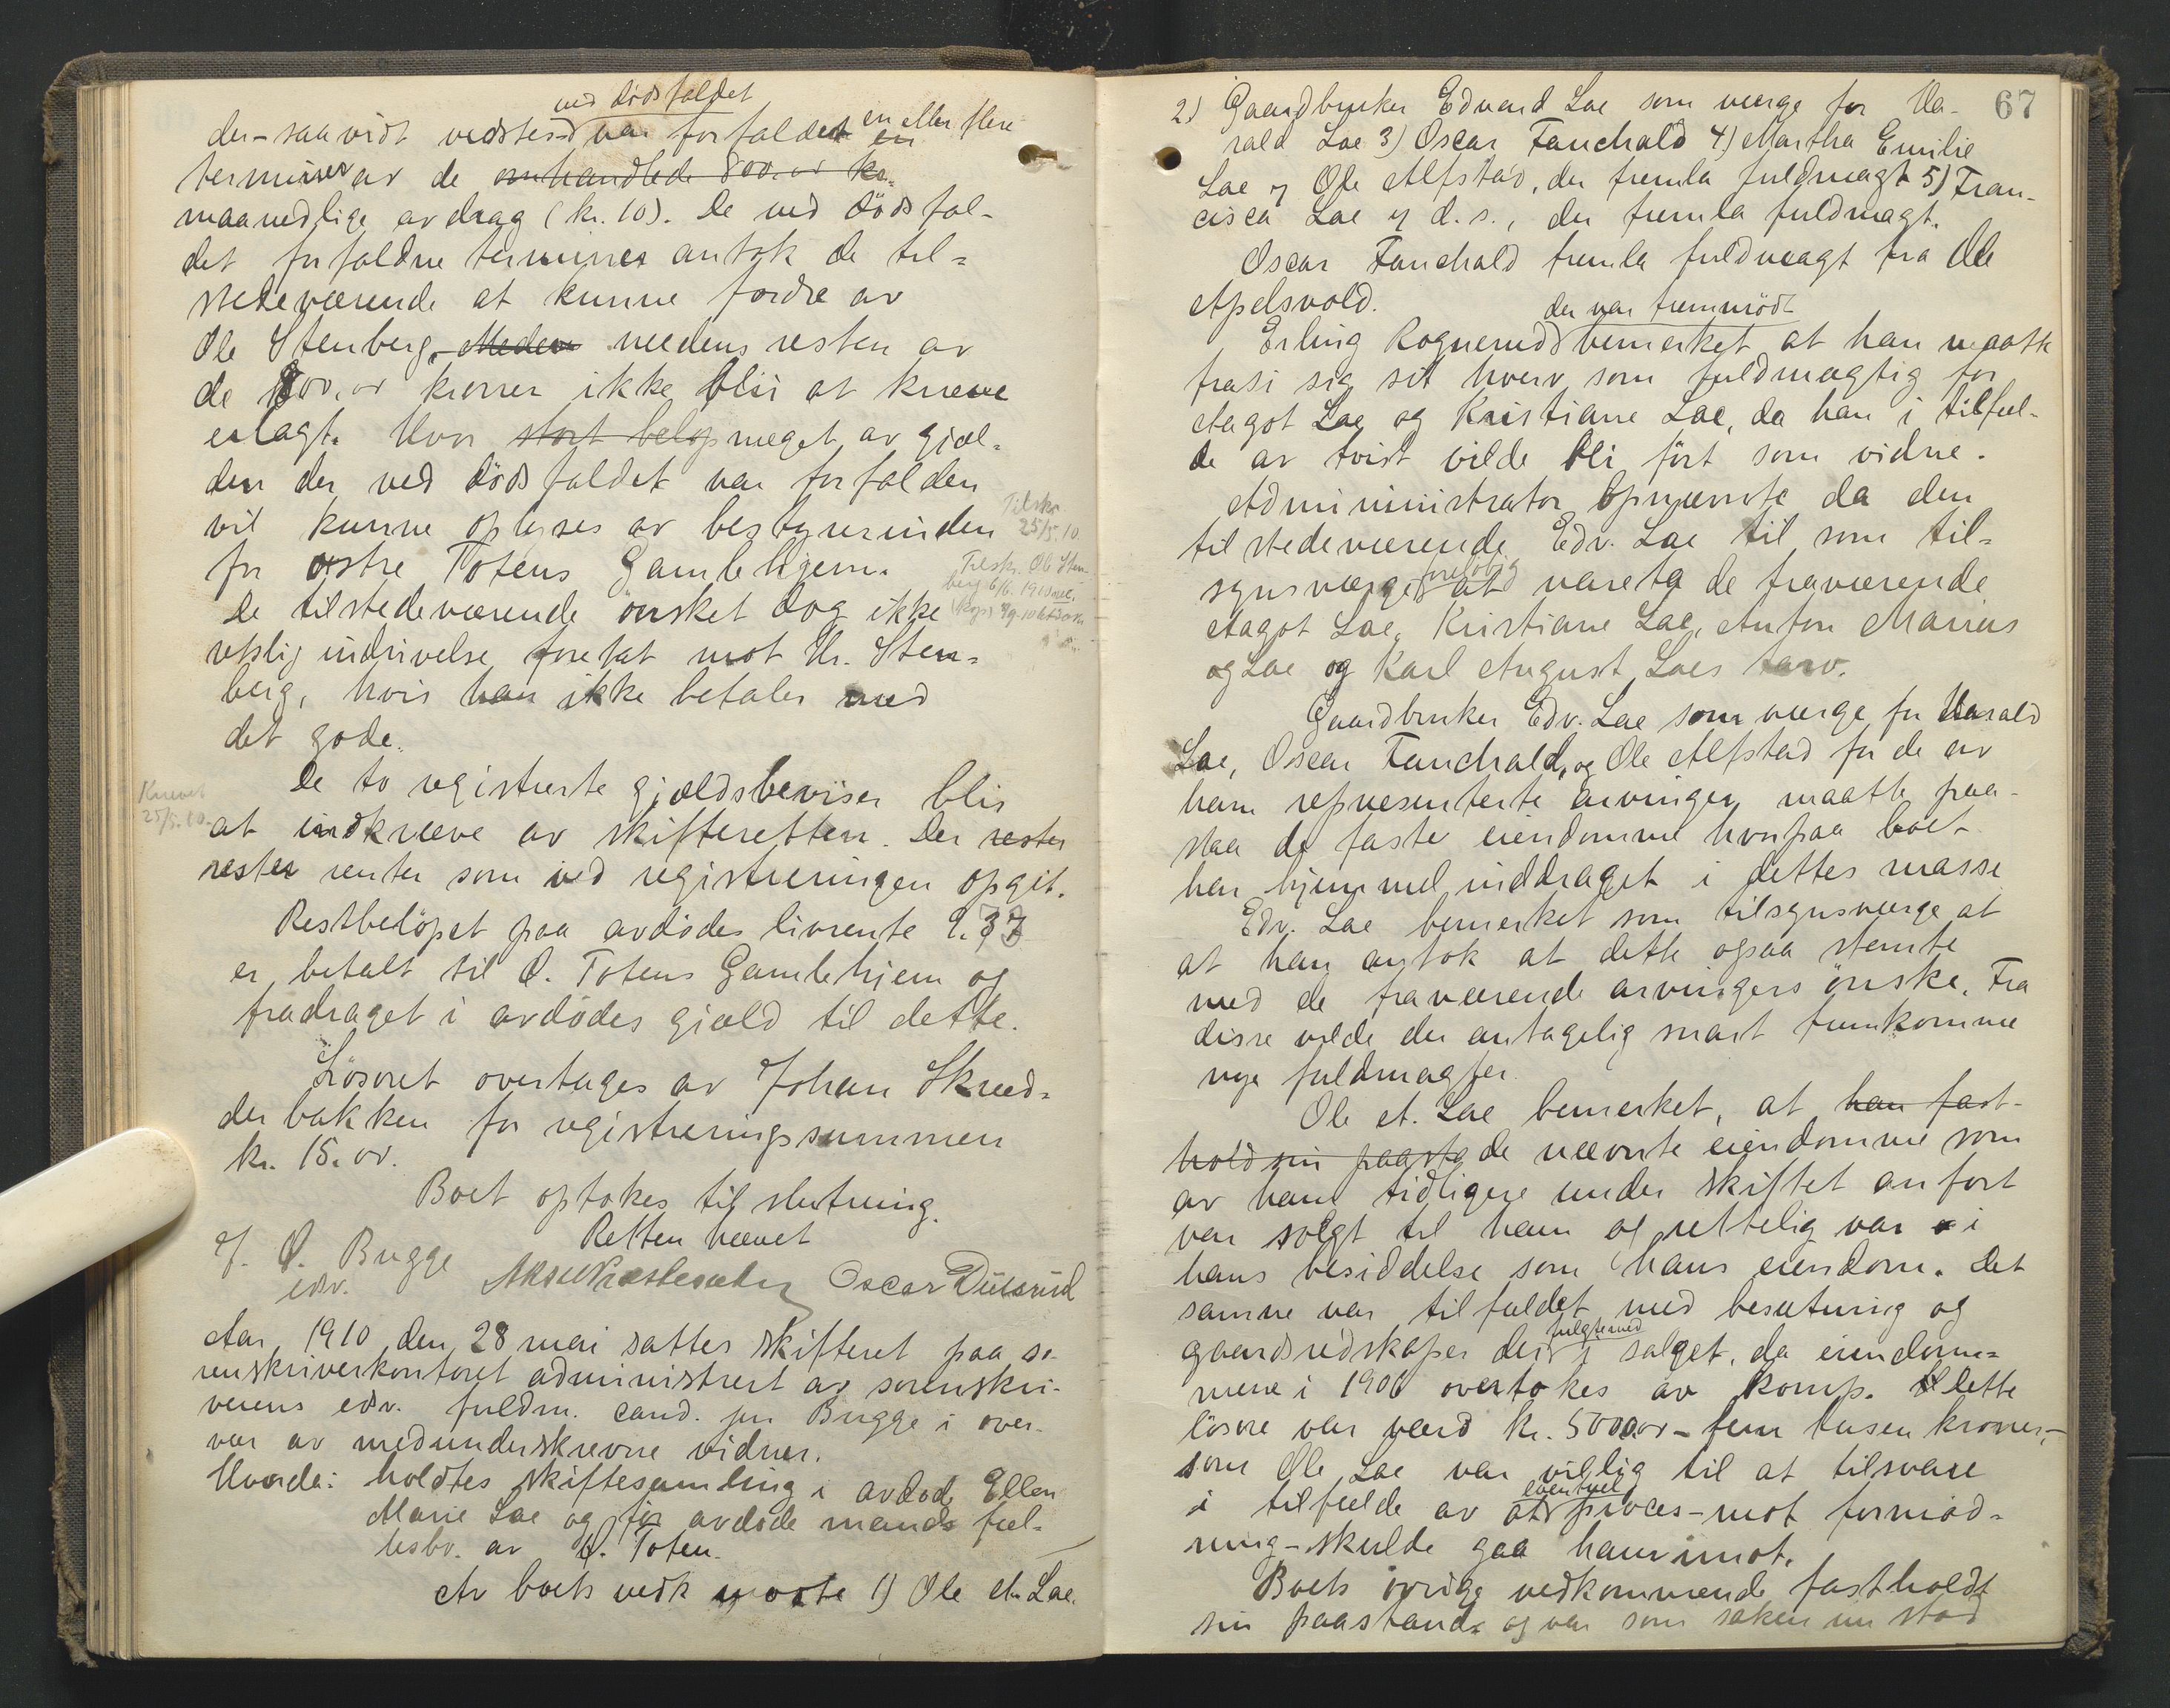 ved dödsfaldet
der - saavidt vedstend var forfaldet en en eller flere
terminer av de omhandlede 800.00 kr.
maanedlige avdrag (kr. 10). De ved dödsfal-
det forfaldne terminer antok de til-
stedeværende at kunne fordre av
Ole Stenberg, Meden medens resten av
de 800.00 kroner ikke blir at kræve
erlagt. Hvor stort belöp meget av gjæl-
den der ved dödsfaldet var forfalden
vil kunne oplyses av bestyrerinden
for östre Totens Gamlehjem.
Tilskr.
25/5.10.
Tilskr. Ole Sten-
berg 6/6. 1910
De tilstedeværende önsket dog ikke
retslig indrivelse foretat mot Hr. Sten-
berg, hvis han ikke betaler med
det gode.
De to registrerte gjældsbeviser blir
Krævet
25/5.10.
at indkræve av skifteretten. Der rester
rester renter som ved registreringen opgit.
Restbelöpet paa avdödes livrente 9.37
er betalt til Ö. Totens Gamlehjem og
fradraget i avdödes gjæld til dette.
Lösöret overtages av Johan Skræd-
derbakken for registreringssummen
kr. 15.00.
Boet optokes til slutning.
Retten hævet
J. O. Bugge
edsv.
Oscar Dülsrud
Aar 1910 den 28 mai sattes skifteret paa so-
renskriverkontoret administrert av sorenskri-
verens edsv. fuldm. cand. jur Bugge i over-
vær av medunderskrevne vidner.
Hvorda: holdtes skiftesamling i avdöde Ellen
Marie Lae og för avdöde mands fæl-
lesbo av Ö. Toten.
Av boets vedk mötte 1) Ole A. Lae.
67
2) Gaardbruker Edvard Lae som værge for Ha-
rald Lae 3) Oscar Fauchald 4) Martha Emilie
Lae og Ole Alfstad, der fremla fuldmagt 5) Fran-
cisca Lae og d. s., der fremla fuldmagt.
Oscar Fauchald fremla fuldmagt fra Ole
Apelsvold.
der var fremmödt
Erling Rognerud bemerket at han maatte
frasi sig sit hverv som fuldmægtig for
Aagot Lae og Kristiane Lae, da han i tilfæl-
de av tvist vilde bli fört som vidne.
Administrator opnævnte da den
tilstedeværende Edv. Lae til som til-
synsværge foreløbig at vareta de fraværende
Aagot Lae, Kristiane Lae, Anton Marius
og Lae og Karl August Laes tarv.
Gaardbruker Edv. Lae som værge for Harald
Lae, Oscar Fauchald, og Ole Alfstad for de av
ham representerte arvinger, maatte paa-
staa de faste eiendomme hvorpaa boet
har hjemmel inddraget i dettes masse
Edv. Lae bemerket som tilsynsværge at
at han antok at dette ogsaa stemte
med de fraværende arvingers önske. Fra
disse vilde der antagelig snart fremkomme
nye fuldmagter.
Ole A. Lae bemerket, at han fast-
hold sin paasta de nævnte eiendomme som
av ham tidligere under skiftet anfört
var solgt til ham og rettelig var i
hans besiddelse som hans eiendom. Det
samme var tilfældet med besætning og
gaardsredskaper der fulgte med i salget, da eiendom-
mene i 1906 overtokes av komp. Dette
lösöre var værd kr. 5000.00 - fem tusen kroner, -
som Ole Lae var villig til at tilsvare
i tilfælde av at eventuel proces - mot formod-
ning - skulde gaa ham imot.
Boets övrige vedkommende fastholdt
sin paastand, og var som saken nu stod